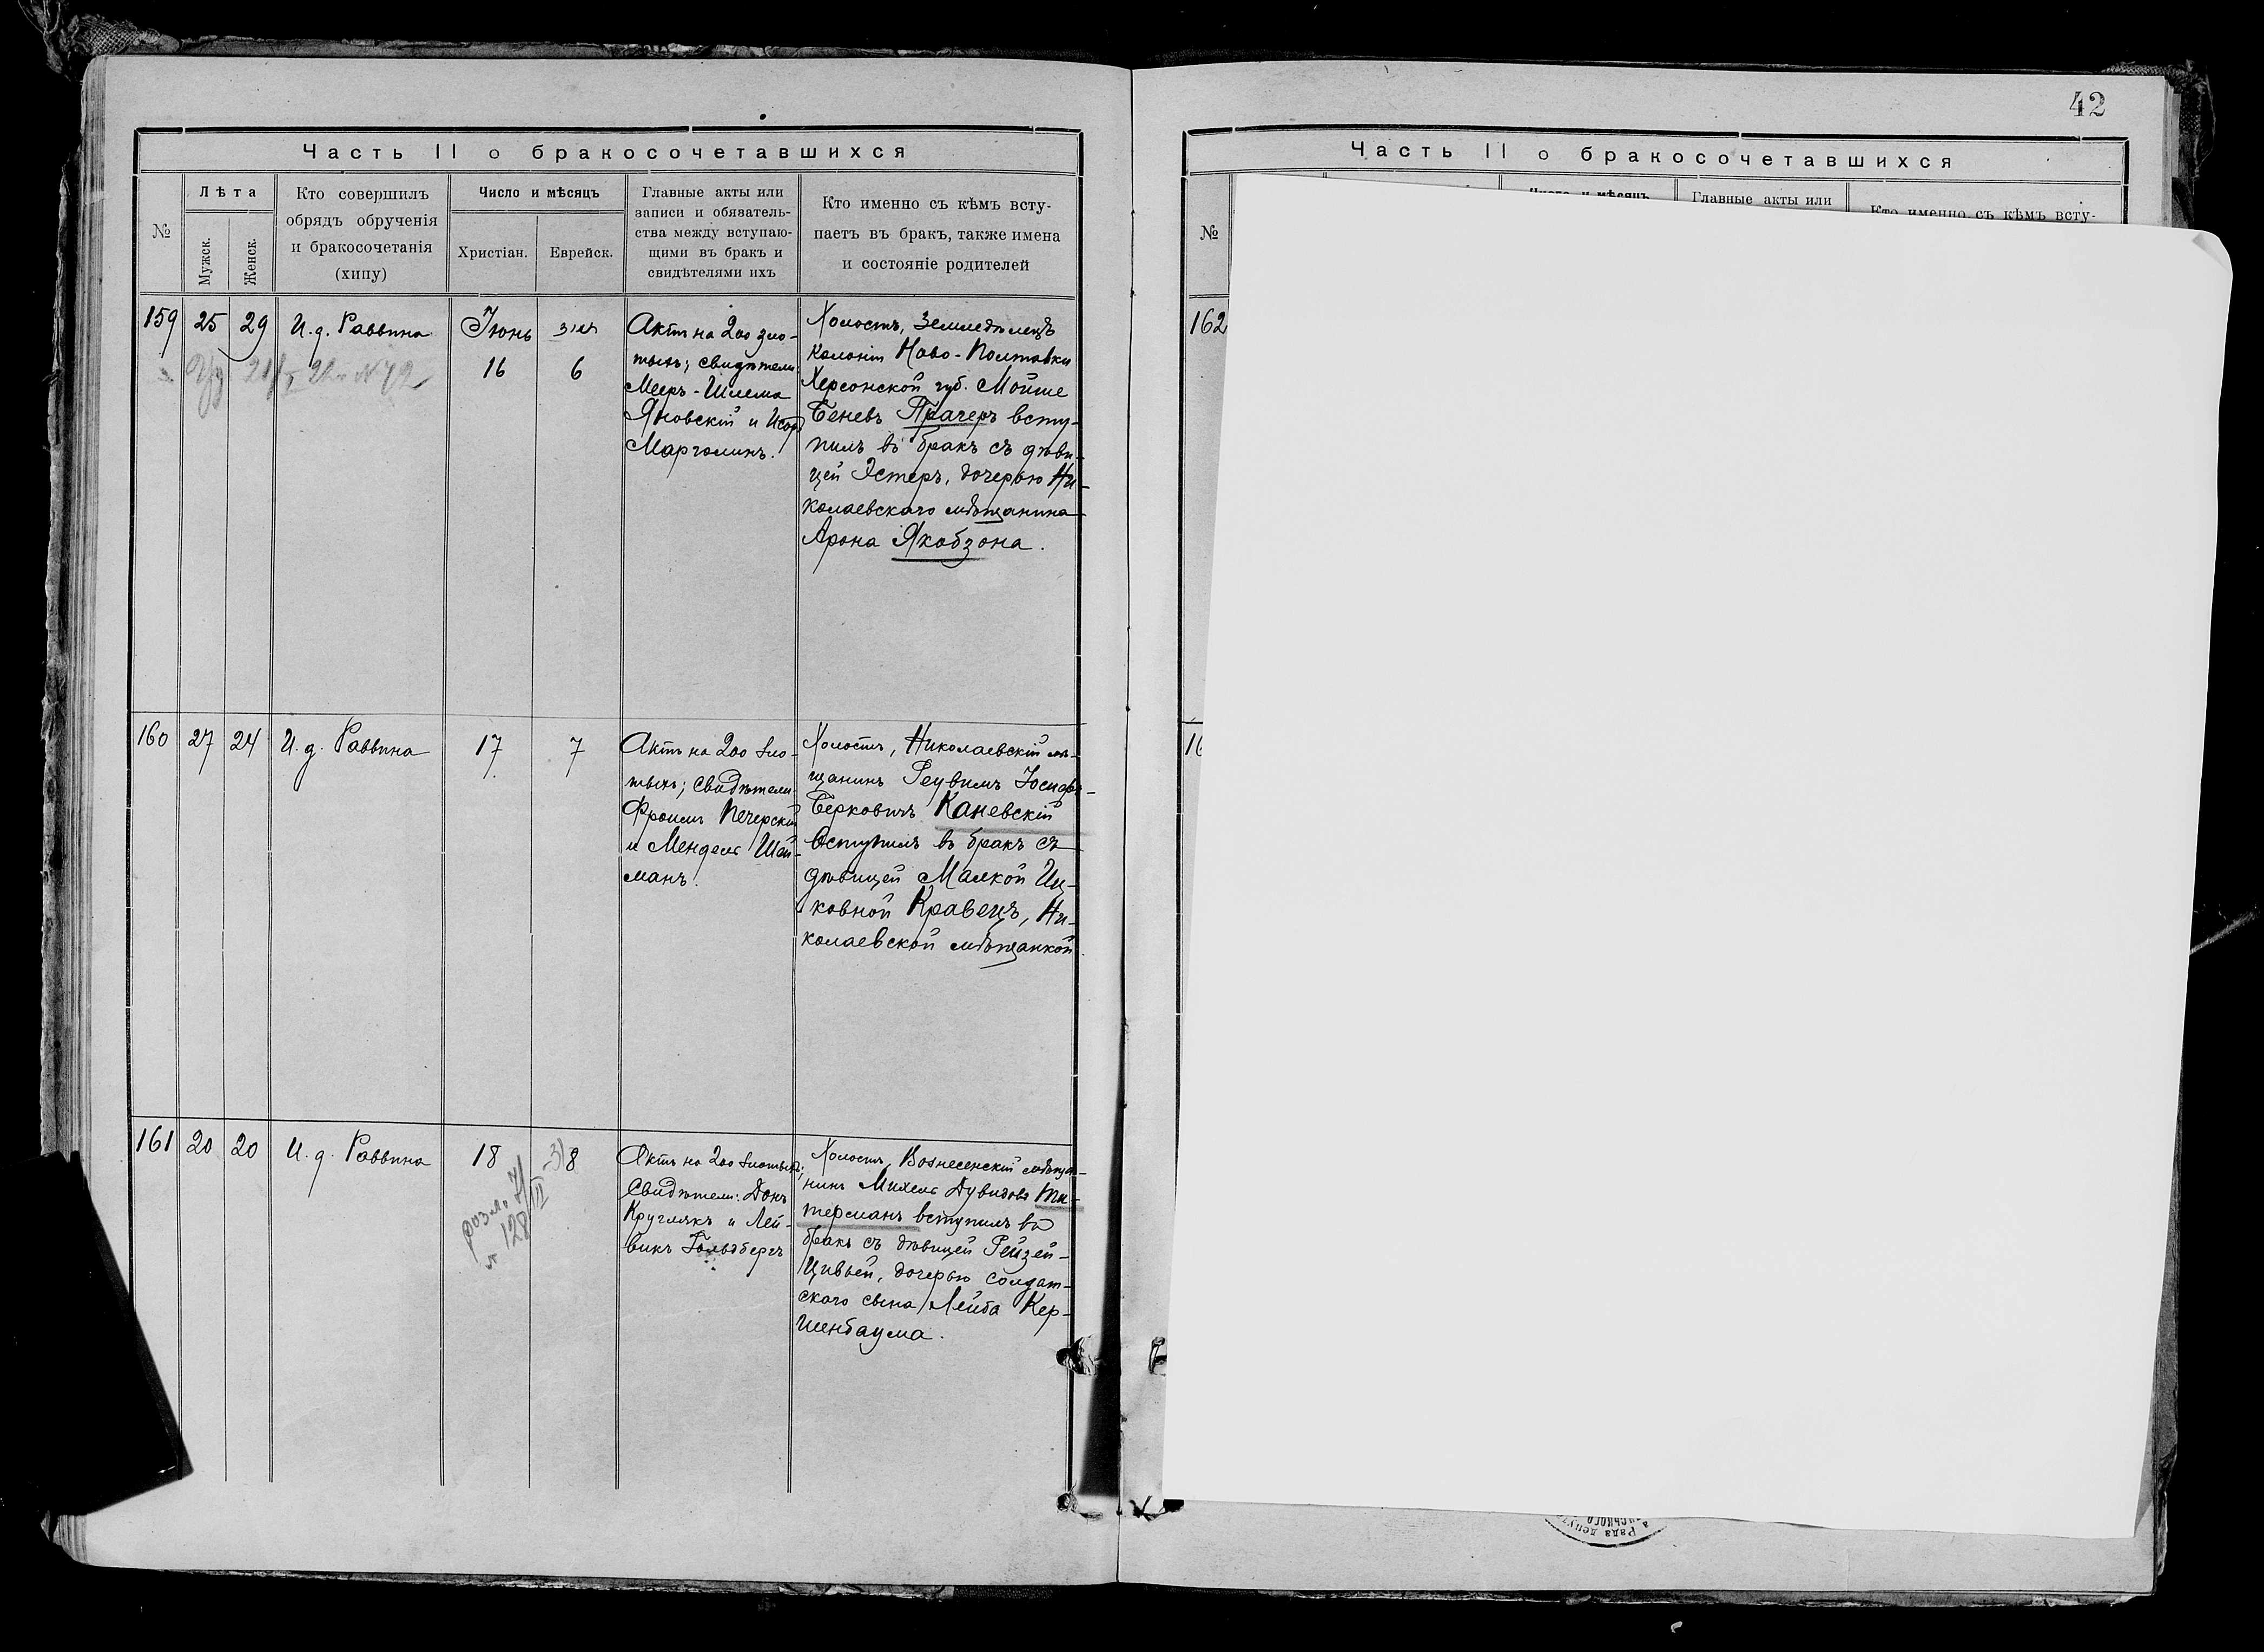 Часть II о бракосочетавшихся
№
Лѣта
Мужск.
Женск.
Кто совершилъ
обрядъ обрученія
и бракосочетанія
(хипу)
Число и мѣсяцъ
Христіан.
Еврейск.
Главные акты или
записи и обязатель-
ства между вступаю-
щими въ бракъ и
свидѣтелями ихъ
Кто именно съ кѣмъ всту-
паетъ въ бракъ, также имена
и состояніе родителей
159
25
29
И. д. Раввина
Іюнь
16
6
Актъ на 200 зло-
тыхъ; свидѣтели
Мееръ-Шлема
Яновскій и
Марголинъ.
Холостъ, Земледѣлецъ
колоніи Ново-Полтавки
Херсонской губ. Мойше
Беневъ Прачеръ всту-
пилъ въ бракъ съ дѣви-
цей Эстеръ, дочерью Ни-
колаевскаго мѣщанина
Арона Якобзона.
160
27
24
И. д. Раввина
17
7
Актъ на 200 зло-
тыхъ; Свидѣтели
Фроимъ Печерскій
и Мендель Шей-
манъ.
Холостъ, Николаевскій мѣ-
щанинъ Реувимъ Іосифъ-
Берковичъ Каневскій
Вступилъ въ бракъ съ
дѣвицей Малкой Иц-
ковной Кравецъ, Ни-
колаевской мѣщанкой
161
20
20
И. д. Раввина
18
8
128
Актъ на 200 злотыхъ;
Свидѣтели: Донъ
Круглякъ и Лей-
викъ Гольдбергъ
Холостъ, Вознесенскій мѣща-
нинъ Михель Дувидовъ Ти-
терманъ вступилъ въ
бракъ съ дѣвицей Рейзей-
Цивьей, дочерью солдат-
скаго сына Лейба Кер-
шенбаума.
42
Часть II о бракосочетавшихся
№
Число и мѣсяцъ
Главные акты или
Кто именно съ кѣмъ всту-
162
16